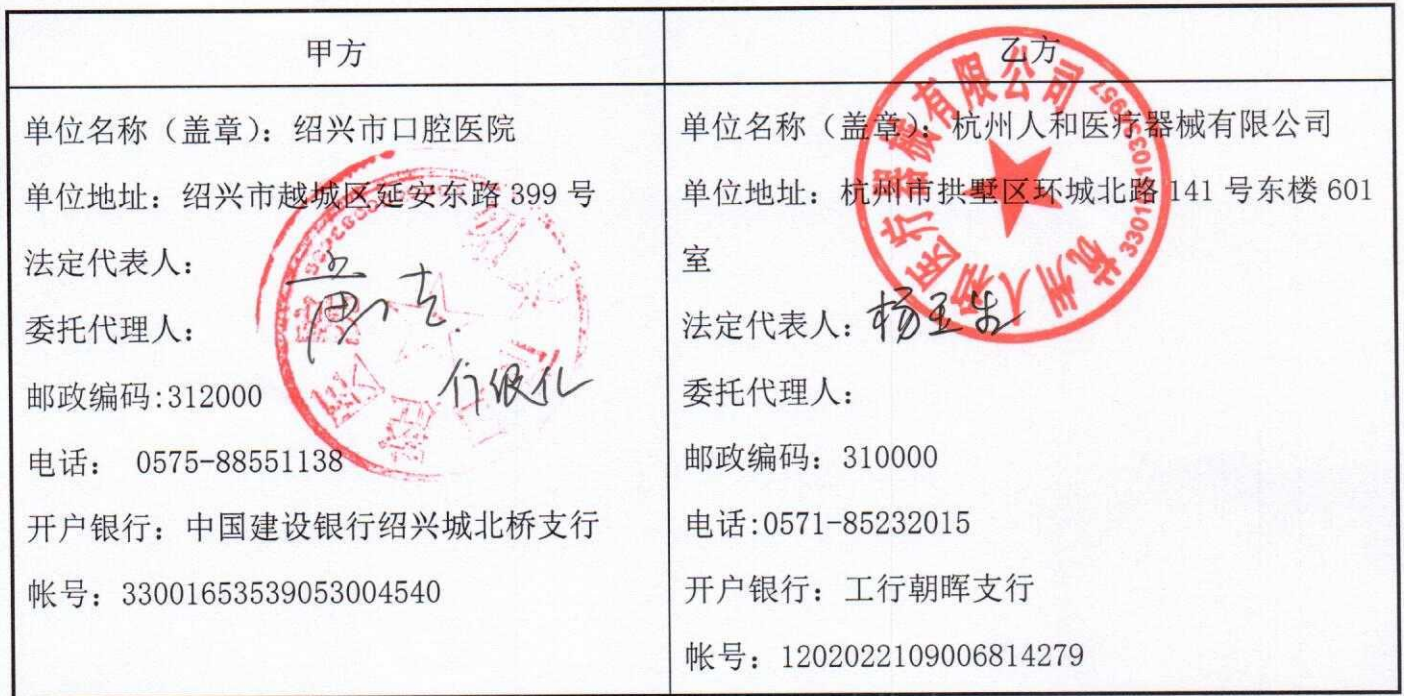 甲方
单位名称（盖章）：绍兴市口腔医院
单位地址：绍兴市越城区延安东路 399 号
法定代表人：
委托代理人：
邮政编码:312000
电话： 0575-88551138
开户银行：中国建设银行绍兴城北桥支行
帐号：33001653539053004540
乙方
单位名称（盖章）：杭州人和医疗器械有限公司
单位地址：杭州市拱墅区环城北路 141 号东楼 601
室
法定代表人：
委托代理人：
邮政编码：310000
电话:0571-85232015
开户银行：工行朝晖支行
帐号：1202022109006814279
杭州人和医疗器械有限公司